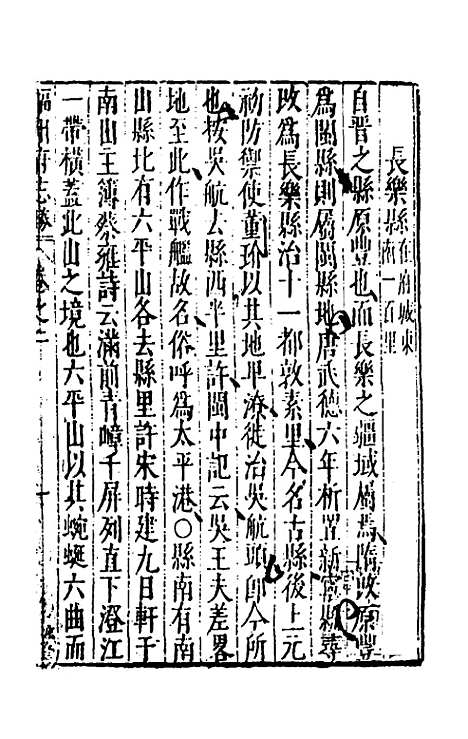 長樂縣在府城東南一百里
自晉之縣原豐也而長樂之疆域屬焉隋改原豐
為閩縣則屬閩縣地唐武德六年析置新寧縣尋
改為長樂縣治十一都敦素里今名古縣後上元
初防禦使董玠以其地卑潦徙治吳航頭即今所
也按吳航去縣西半里許閩中記云吳王夫差畧
地至此作戰艦故名俗呼為太平港○縣南有南
山縣北有六平山各去縣里許宋時建九日軒于
南山主簿蔡雍詩云滿前青嶂千屏列直下澄江
一帶橫蓋此山之境也六平山以其蜿蜒六曲而
福州府志勝 卷之二